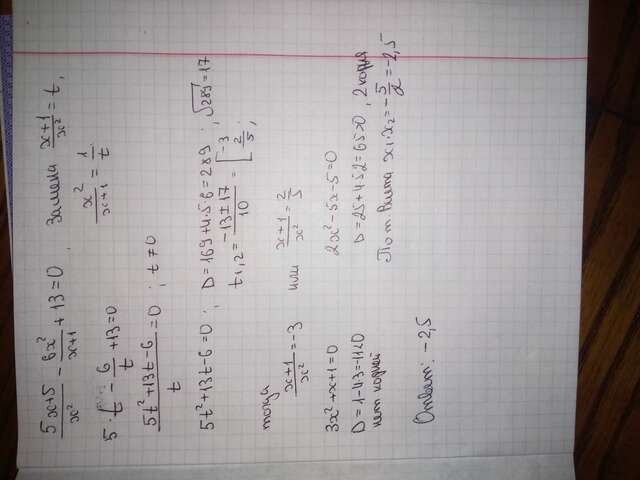 (5x+5)/x² - 6x²/(x+1) + 13 = 0 . Замена (x+1)/x² = t,
x²/(x+1) = 1/t
5·t - 6/t + 13 = 0
(5t²+13t-6)/t = 0 ; t ≠ 0
5t²+13t-6=0 ; D=169+4·5·6=289 ; √289=17
t₁,₂ = (-13±17)/10 = [-3 2/5 ;
тогда
(x+1)/x² = -3 или (x+1)/x² = 2/5
3x²+x+1=0 2x²-5x-5=0
D=1-4·3=-11<0 D=25+4·5·2=65>0, 2 корня
нет корней По т Виета x₁·x₂=-5/2=-2,5
Ответ: -2,5